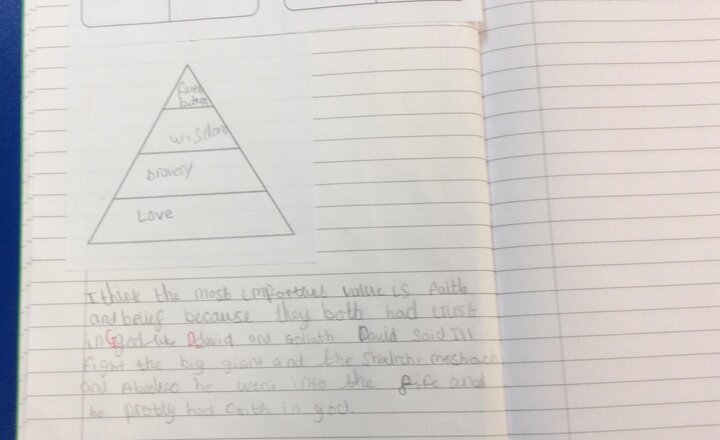 faith
belief
wisdom
bravery
Love
I think the most important value is faith
and belief because they both had trust
in God like David and Goliath David said I'll
fight the big giant and the Shadrach meshach
and Abednego he went into the fire and
he probly had faith in god.